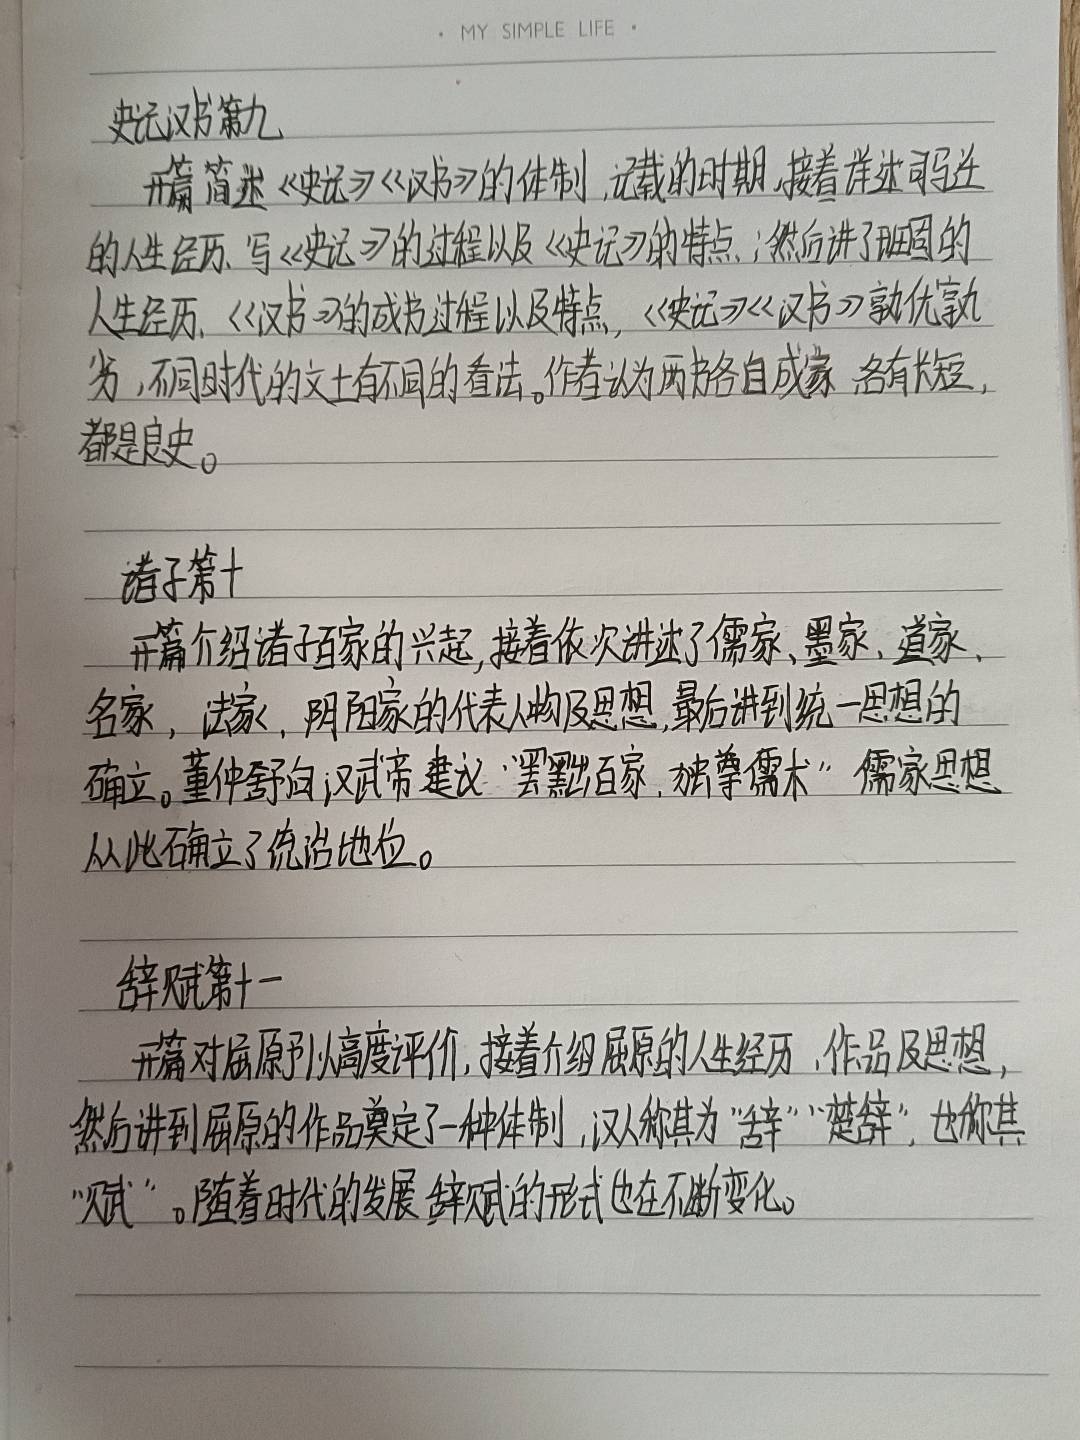 · MY SIMPLE LIFE ·
史记汉书第九
开篇简述《史记》《汉书》的体制,记载的时期,接着详述司马迁
的人生经历、写《史记》的过程以及《史记》的特点;然后讲了班固的
人生经历、《汉书》的成书过程以及特点,《史记》《汉书》孰优孰
劣,不同时代的文士有不同的看法。作者认为两书各自成家 各有长短,
都是良史。
诸子第十
开篇介绍诸子百家的兴起,接着依次讲述了儒家、墨家、道家、
名家,法家,阴阳家的代表人物及思想,最后讲到统一思想的
确立。董仲舒向汉武帝建议“罢黜百家,独尊儒术”儒家思想
从此确立了统治地位。
辞赋第十一
开篇对屈原予以高度评价,接着介绍屈原的人生经历,作品及思想,
然后讲到屈原的作品奠定了一种体制,汉人称其为“辞”“楚辞”,也称其
“赋”。随着时代的发展 辞赋的形式也在不断变化。